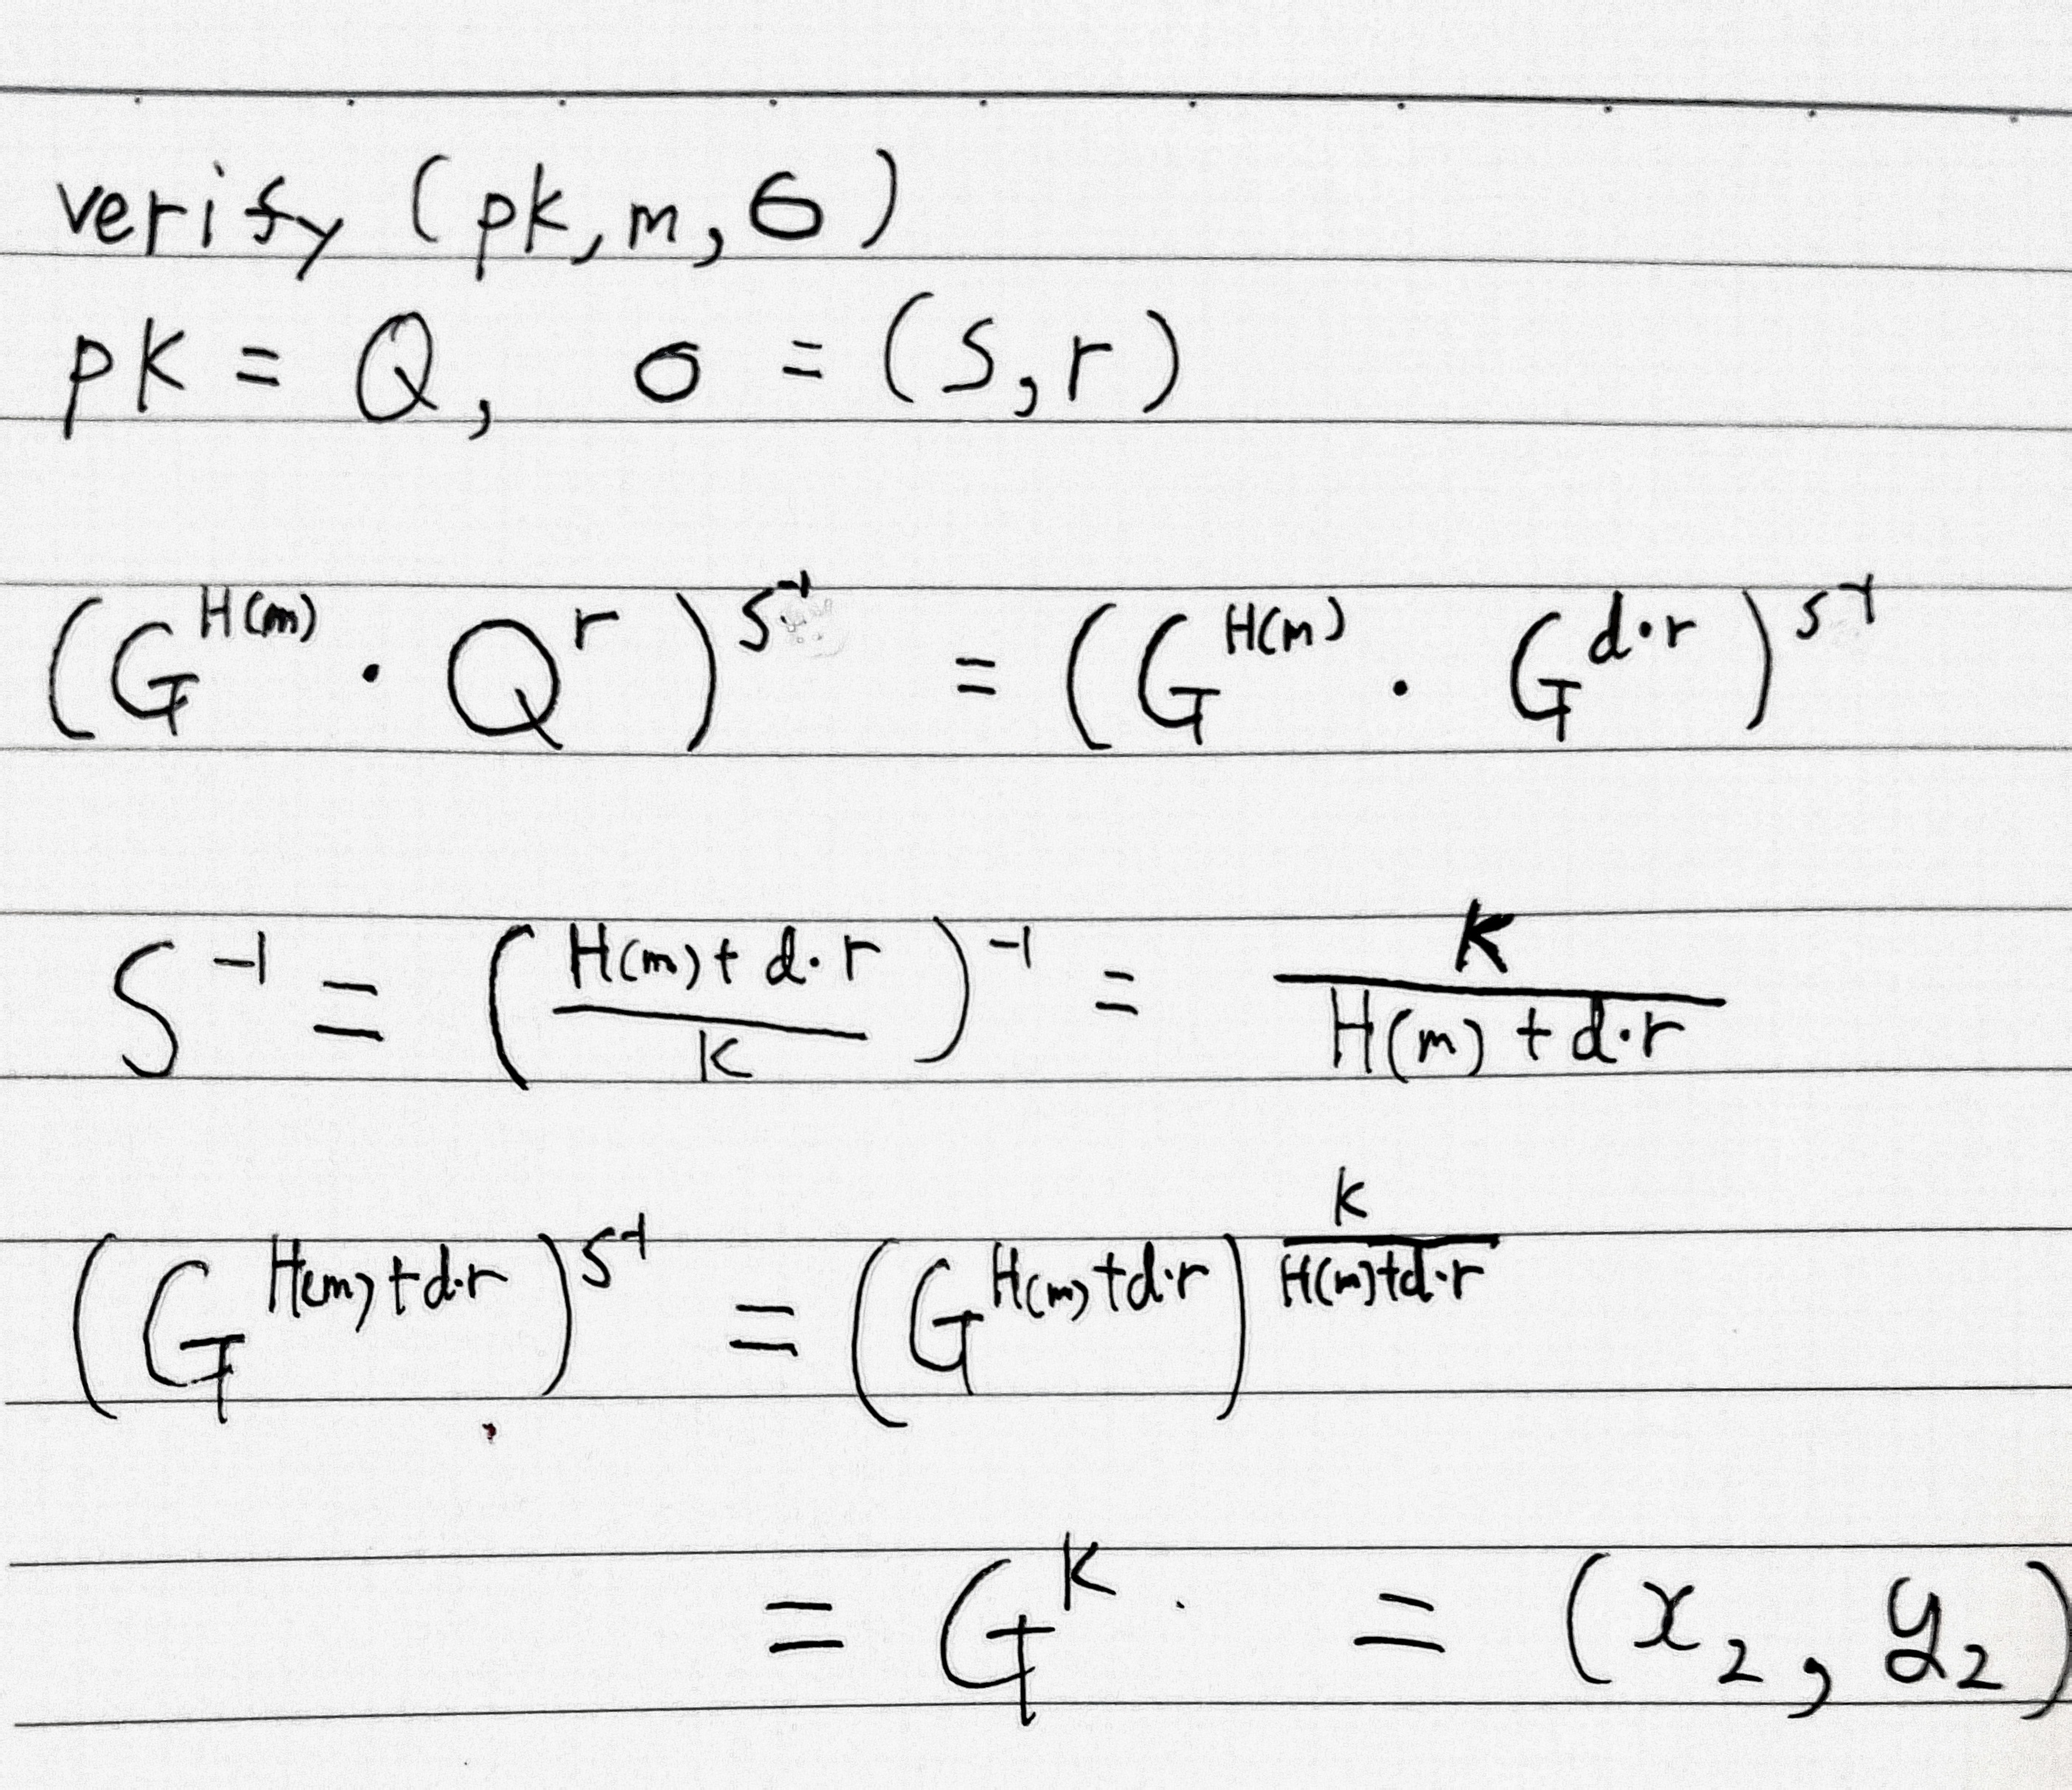 verify (pk, m, σ)
pk = Q, σ = (s, r)
(G^{H(m)} · Q^r)^{s^{-1}} = (G^{H(m)} · G^{d·r})^{s^{-1}}
S^{-1} = (\frac{H(m) + d·r}{k})^{-1} = \frac{k}{H(m) + d·r}
(G^{H(m)+d·r})^{s^{-1}} = (G^{H(m)+d·r})^{\frac{k}{H(m)+d·r}}
= G^k · = (x_2, y_2)